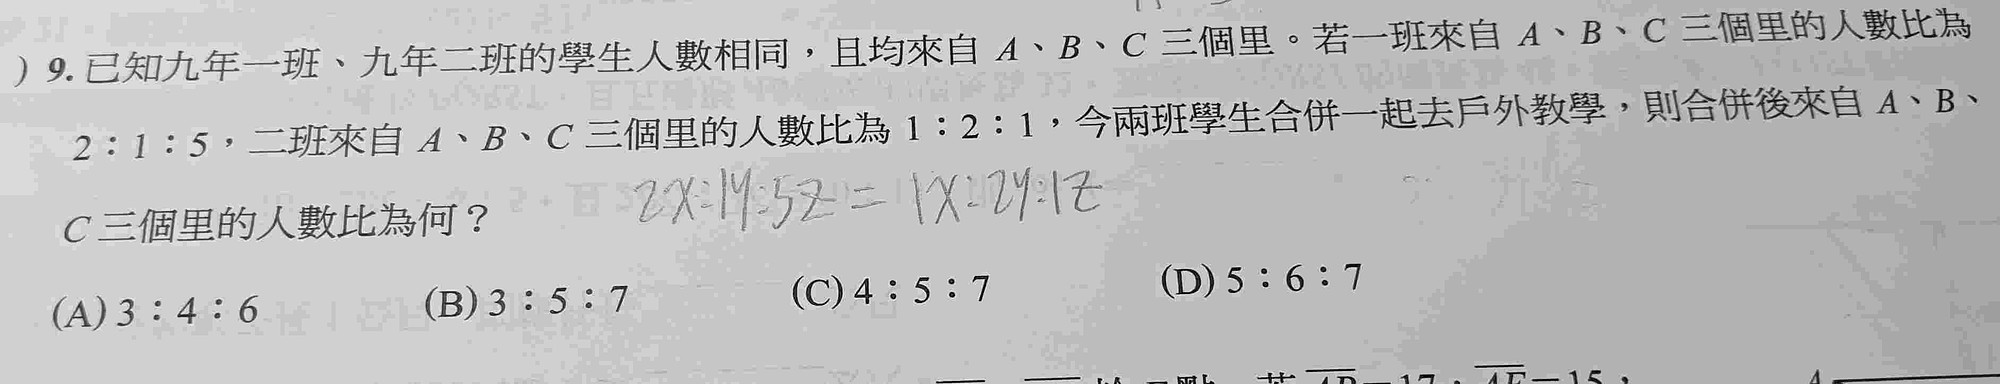 ) 9. 已知九年一班、九年二班的學生人數相同，且均來自 A、B、C 三個里。若一班來自 A、B、C 三個里的人數比為
2：1：5，二班來自 A、B、C 三個里的人數比為 1：2：1，今兩班學生合併一起去戶外教學，則合併後來自 A、B、
C 三個里的人數比為何？
2x:1y:5z=1x:2y:1z
(A) 3：4：6 (B) 3：5：7 (C) 4：5：7 (D) 5：6：7